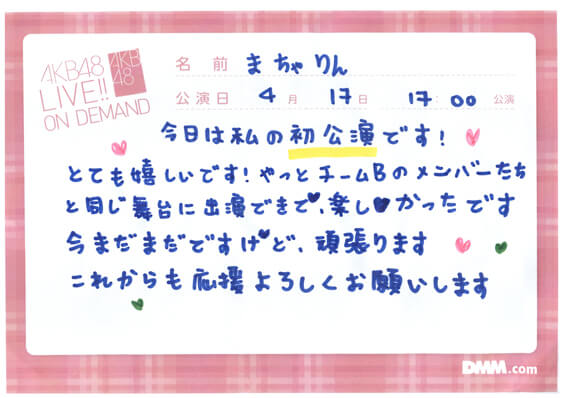 AKB48
LIVE!!
ON DEMAND
AKB
48
名前 まちゃりん
公演日 4月 17日 17:00 公演
今日は私の初公演です!
とても嬉しいです!やっとチームBのメンバーたち
と同じ舞台に出演できて、楽しかったです
今まだまだですけど、頑張ります
これからも応援よろしくお願いします
DMM.com